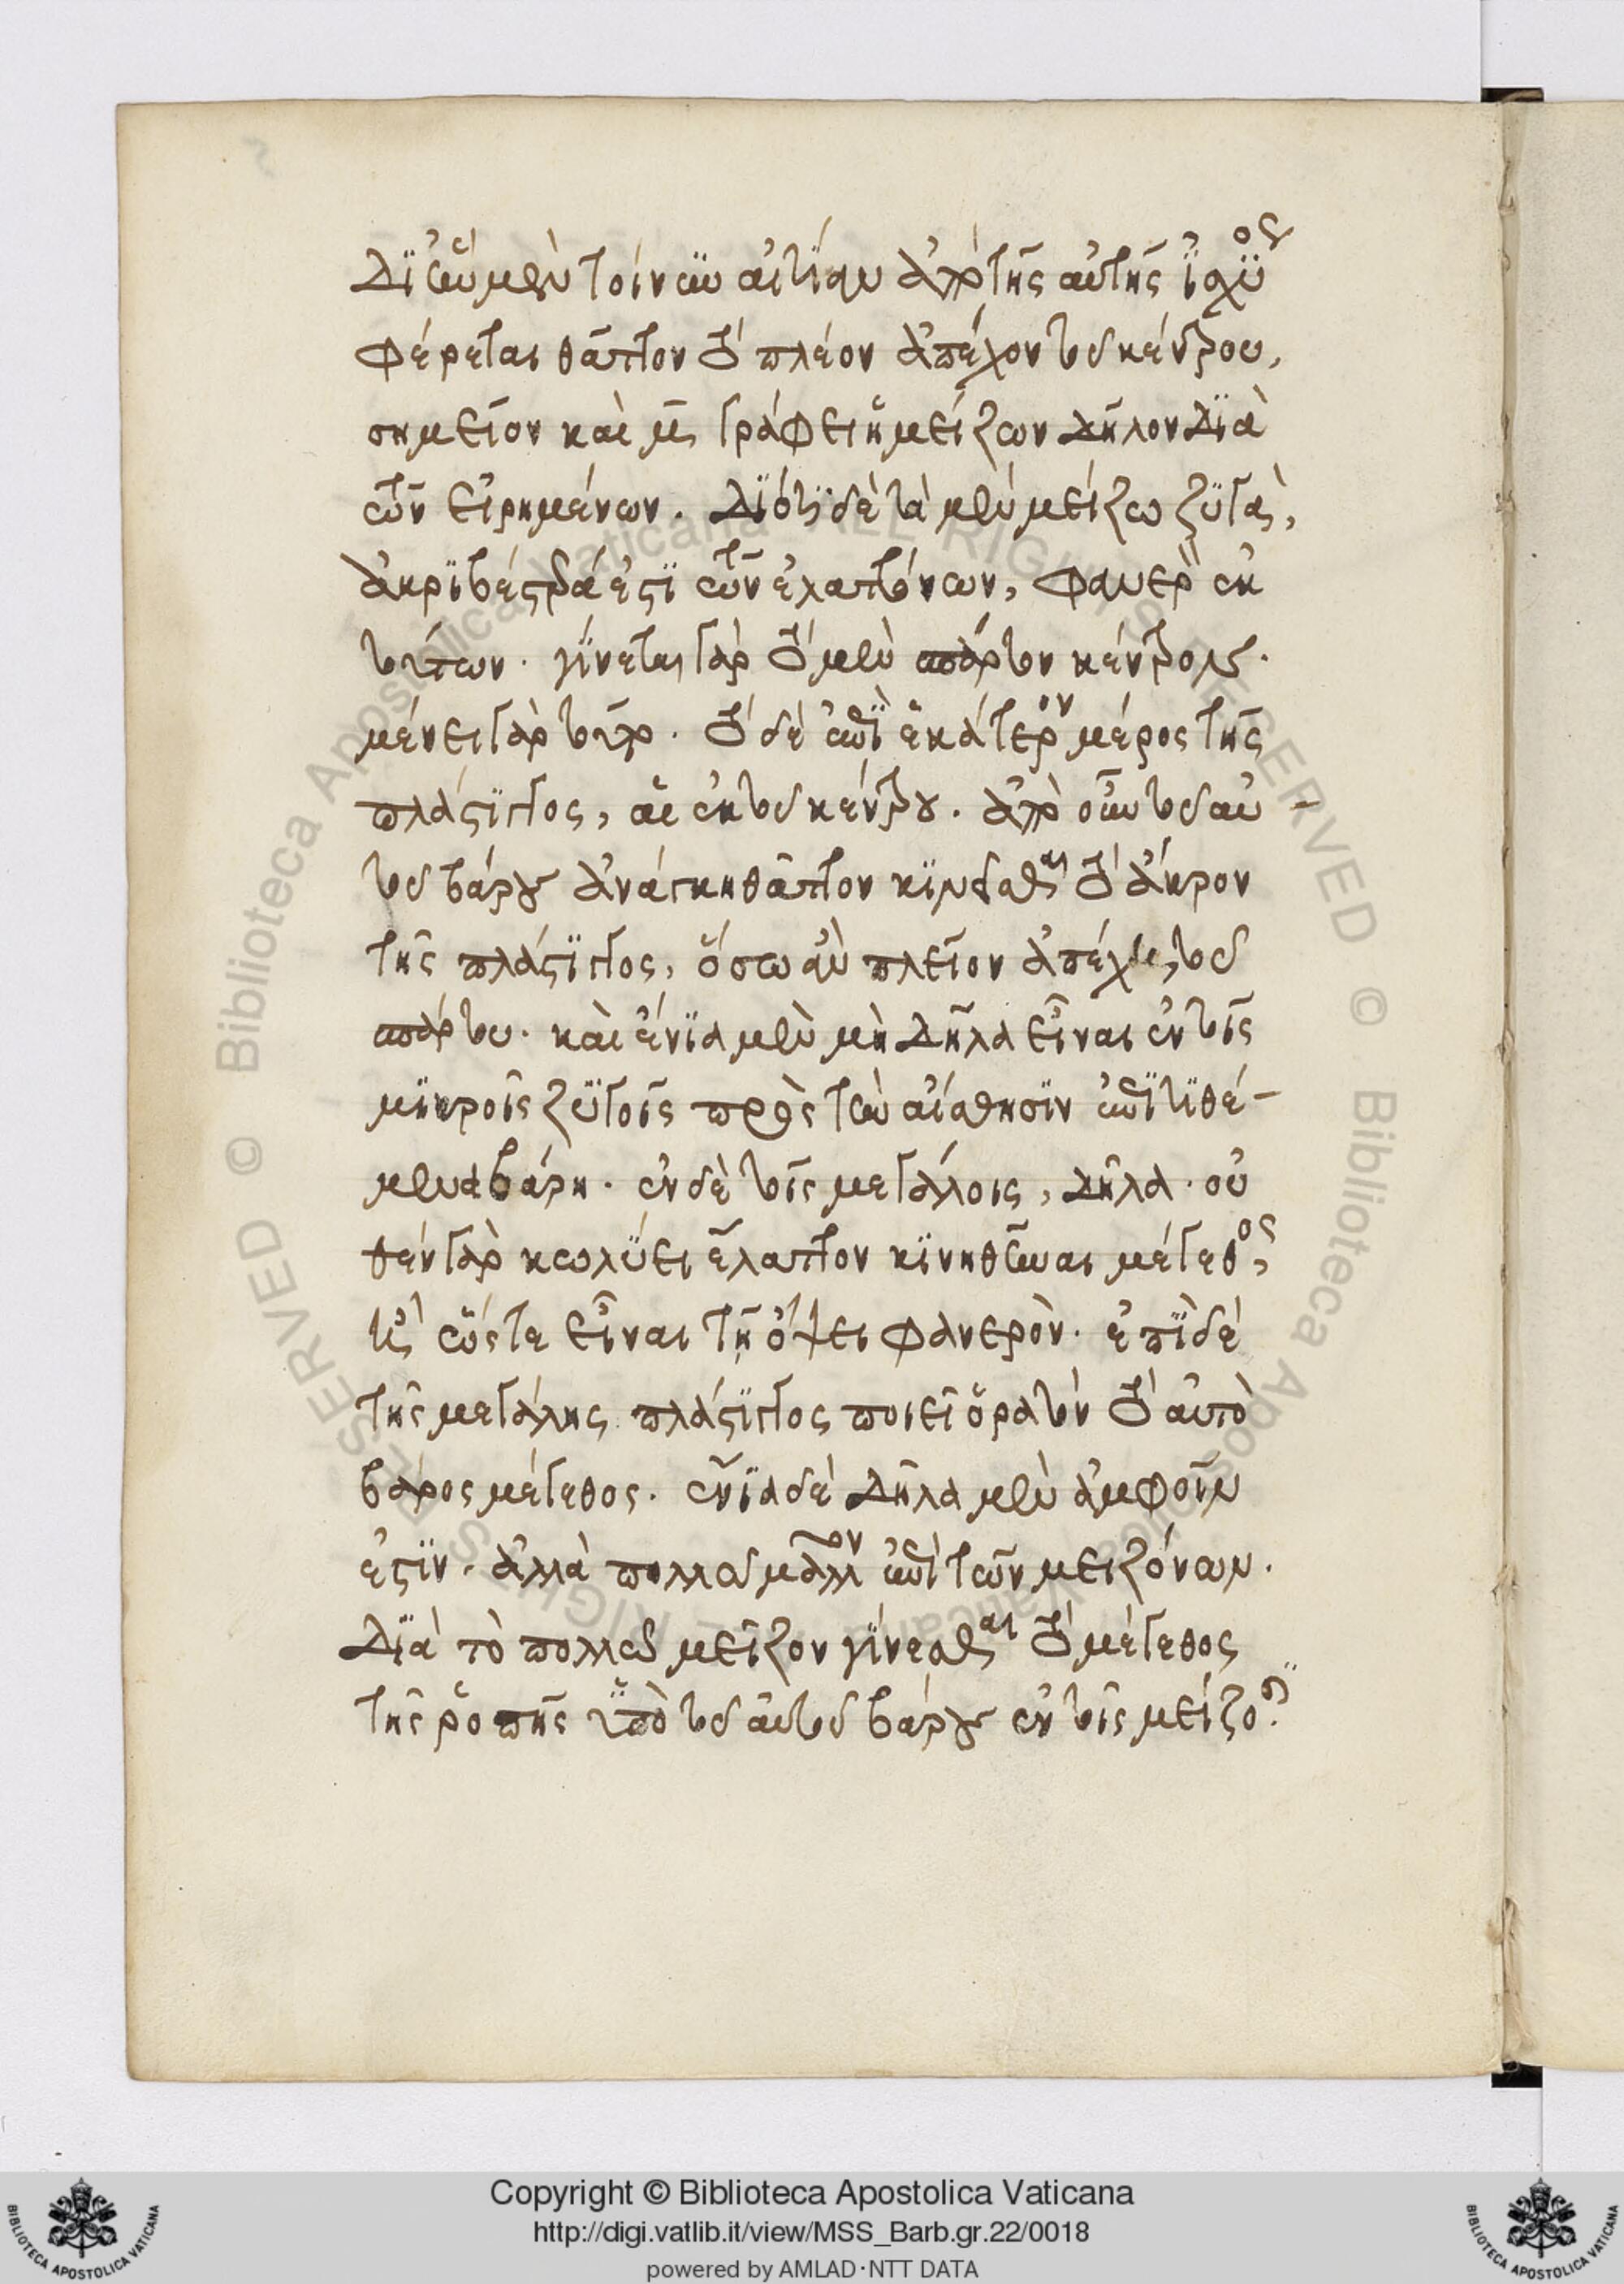 Δι' ἣν μὲν τοίνυν αἰτίαν ἀπὸ τῆς αὐτῆς ἰσχύος
φέρεται θᾶττον τὸ πλέον ἀπέχον τοῦ κέντρου,
σημεῖον καὶ γράφει ἡ μείζων δῆλον διὰ
τῶν εἰρημένων. Διότι δὲ τὰ μὲν μείζω ζυγὰ,
ἀκριβέστερά ἐστι τῶν ἐλαττόνων, φανερὸν ἐκ
τούτων. γίνεται γὰρ τὸ μὲν σπάρτον κέντρον.
μένει γὰρ τοῦτο. τὸ δὲ ἐπὶ ἑκάτερον μέρος τῆς
πλάστιγγος, αἱ ἐκ τοῦ κέντρου. ἀπὸ οὖν τοῦ αὐ-
τοῦ βάρους ἀνάγκη θᾶττον κινεῖσθαι τὸ ἄκρον
τῆς πλάστιγγος, ὅσω ἂν πλεῖον ἀπέχη τοῦ
σπάρτου. καὶ ἔνια μὲν μὴ δῆλα εἶναι ἐν τοῖς
μικροῖς ζυγοῖς πρὸς τὴν αἴσθησιν ἐπιτιθέ-
μενα βάρη. ἐν δὲ τοῖς μεγάλοις, δῆλα. οὐ
θὲν γὰρ κωλύει ἔλαττον κινηθῆναι μέγεθος,
ἢ ὥστε εἶναι τῆ ὄψει φανερόν. ἐπὶ δὲ
τῆς μεγάλης πλάστιγγος ποιεῖ ὁρατὸν τὸ αὐτὸ
βάρος μέγεθος. ἔνια δὲ δῆλα μὲν ἀμφοῖν
ἐστιν. ἀλλὰ πολλῶ μᾶλλον ἐπὶ τῶν μειζόνων.
Διὰ τὸ πολλῶ μεῖζον γίνεσθαι τὸ μέγεθος
τῆς ῥοπῆς ὑπὸ τοῦ αὐτοῦ βάρους ἐν τοῖς μείζοσι.
Copyright © Biblioteca Apostolica Vaticana
http://digi.vatlib.it/view/MSS_Barb.gr.22/0018
powered by AMLAD·NTT DATA